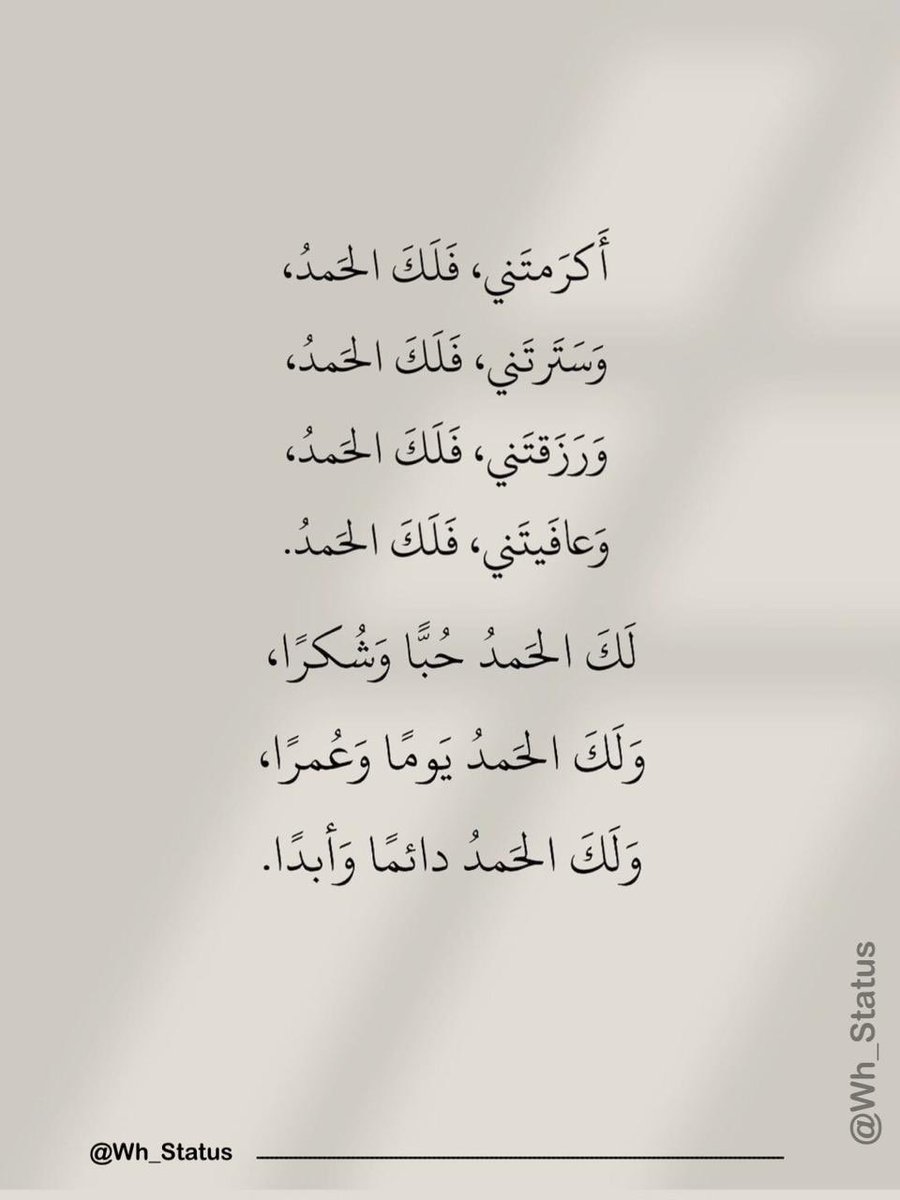 أَكرَمتَني، فَلَكَ الحَمدُ،
وَسَتَرتَني، فَلَكَ الحَمدُ،
وَرَزَقتَني، فَلَكَ الحَمدُ،
وَعافَيتَني، فَلَكَ الحَمدُ.
لَكَ الحَمدُ حُبًّا وَشُكرًا،
وَلَكَ الحَمدُ يَومًا وَعُمرًا،
وَلَكَ الحَمدُ دائمًا وَأبدًا.
@Wh_Status
@Wh_Status